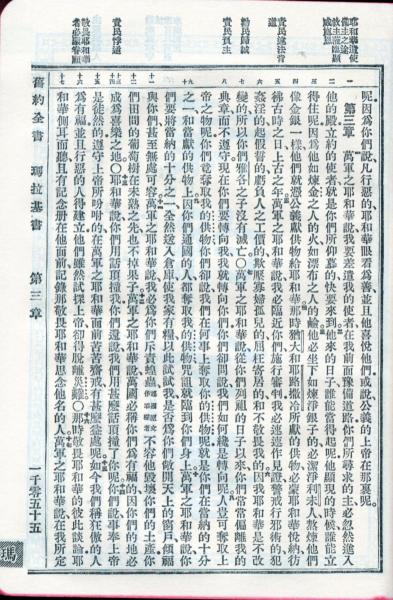 耶和華遣使
備主之途
主臨顯
威嚴
責民違法背
道
勸民歸誠
責民負主
責民悖逆
敬畏耶和華
者必蒙眷顧
呢因爲你們說凡行惡的耶和華眼看爲善並且他喜悅他們或說公義的上帝在那裏呢
第三章 萬軍之耶和華說我要差遣我的使者在我前面豫備道路你們所尋求的主必忽然進入
他的殿立約的使者就是你們所仰慕的快要來到他來的日子誰能當得起呢他顯現的時候誰能立
得住呢因爲他如煉金之人的火如漂布之人的鹼他必坐下如煉淨銀子的必潔淨利未人熬煉他們
像金銀一樣他們就憑公義獻供物給耶和華那時猶大和耶路撒冷所獻的供物必蒙耶和華悅納彷
彿古時之日上古之年萬軍之耶和華說我必臨近你們施行審判我必速速作見證警戒行邪術的犯
姦淫的起假誓的虧負人之工價的欺壓寡婦孤兒的屈枉寄居的和不敬畏我的因我耶和華是不改
變的所以你們雅各之子沒有滅亡○萬軍之耶和華說從你們列祖的日子以來你們常常偏離我的
典章而不遵守現在你們要轉向我我就轉向你們你們卻問說我們如何纔是轉向呢人豈可奪取上
帝之物呢你們竟奪取我的供物你們卻說我們在何事上奪取你的供物呢就是你們在當納的十分
之一和當獻的供物上因你們通國的人都奪取我的供物咒詛就臨到你們身上萬軍之耶和華說你
們要將當納的十分之一全然送入倉庫使我家有糧以此試試我是否爲你們敞開天上的窗戶傾福
與你們甚至無處可容萬軍之耶和華說我必爲你們斥責蝗蟲不容他毀壞你們的土產你
們田間的葡萄樹在未熟之先也不掉果子萬軍之耶和華說萬國必稱你們爲有福的因你們的地必
成爲喜樂之地○耶和華說你們用話頂撞我你們還說我們用甚麼話頂撞了你呢你們說事奉上帝
是徒然的遵守上帝所吩咐的在萬軍之耶和華面前苦苦齋戒有甚麼益處呢如今我們稱狂傲的人
爲有福並且行惡的人得建立他們雖然試探上帝卻得脫離災難○那時敬畏耶和華的彼此談論耶
和華側耳而聽且有記念冊在他面前記錄那敬畏耶和華思念他名的人萬軍之耶和華說在我所定
舊約全書 瑪拉基書 第三章 一千零五十五
瑪